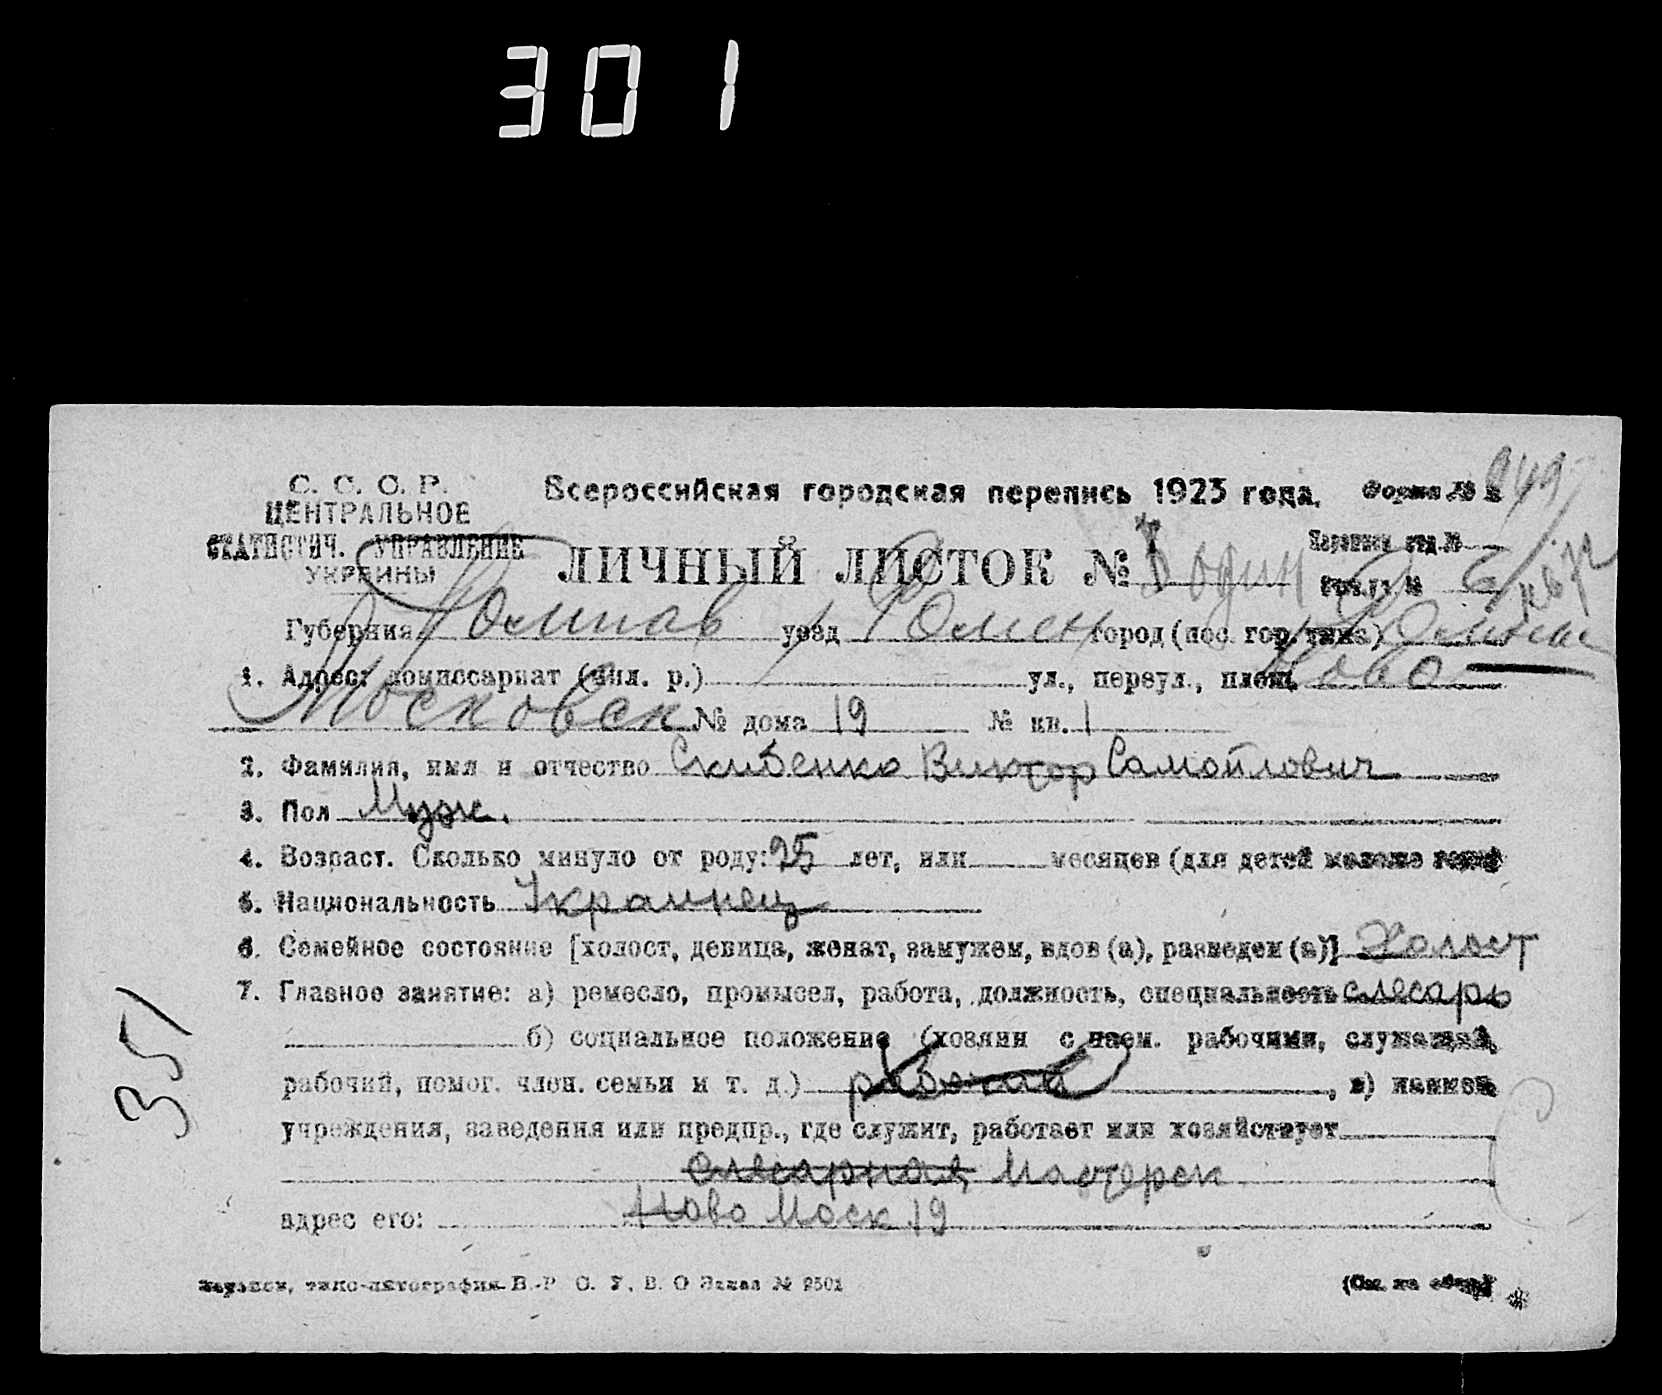 301
С. С. С. Р.
ЦЕНТРАЛЬНОЕ
СТАТИСТИЧ. УПРАВЛЕНИЕ
УКРАИНЫ
Всероссийская городская перепись 1923 года.
Форма №
949
ЛИЧНЫЙ ЛИСТОК № один
Переписн. отд. №
Губерния Полтав уезд Ромен город (пос. гор. типа) Ромны
1. Адрес: комиссариат (мил. р.) ул., переул., площ. Ново
Московск № дома 19 № кв. 1
2. Фамилия, имя и отчество Скибенко Виктор Самойлович
3. Пол Муж.
4. Возраст. Сколько минуло от роду: 25 лет, или месяцев (для детей моложе года)
5. Национальность Украинец
6. Семейное состояние [холост, девица, женат, замужем, вдов (а), разведен (а)] Холост
7. Главное занятие: а) ремесло, промысел, работа, должность, специальность слесарь
б) социальное положение (хозяин с наем. рабочими, служащий,
рабочий, помог. член. семьи и т. д.) рабочий, в) наимен
учреждения, заведения или предпр., где служит, работает или хозяйствует
слесарная мастерск
адрес его: Ново Моск 19
351
Харьков, типо-литография В.-Р. С. У. В. О Заказ № 2501
(См. на обор.)